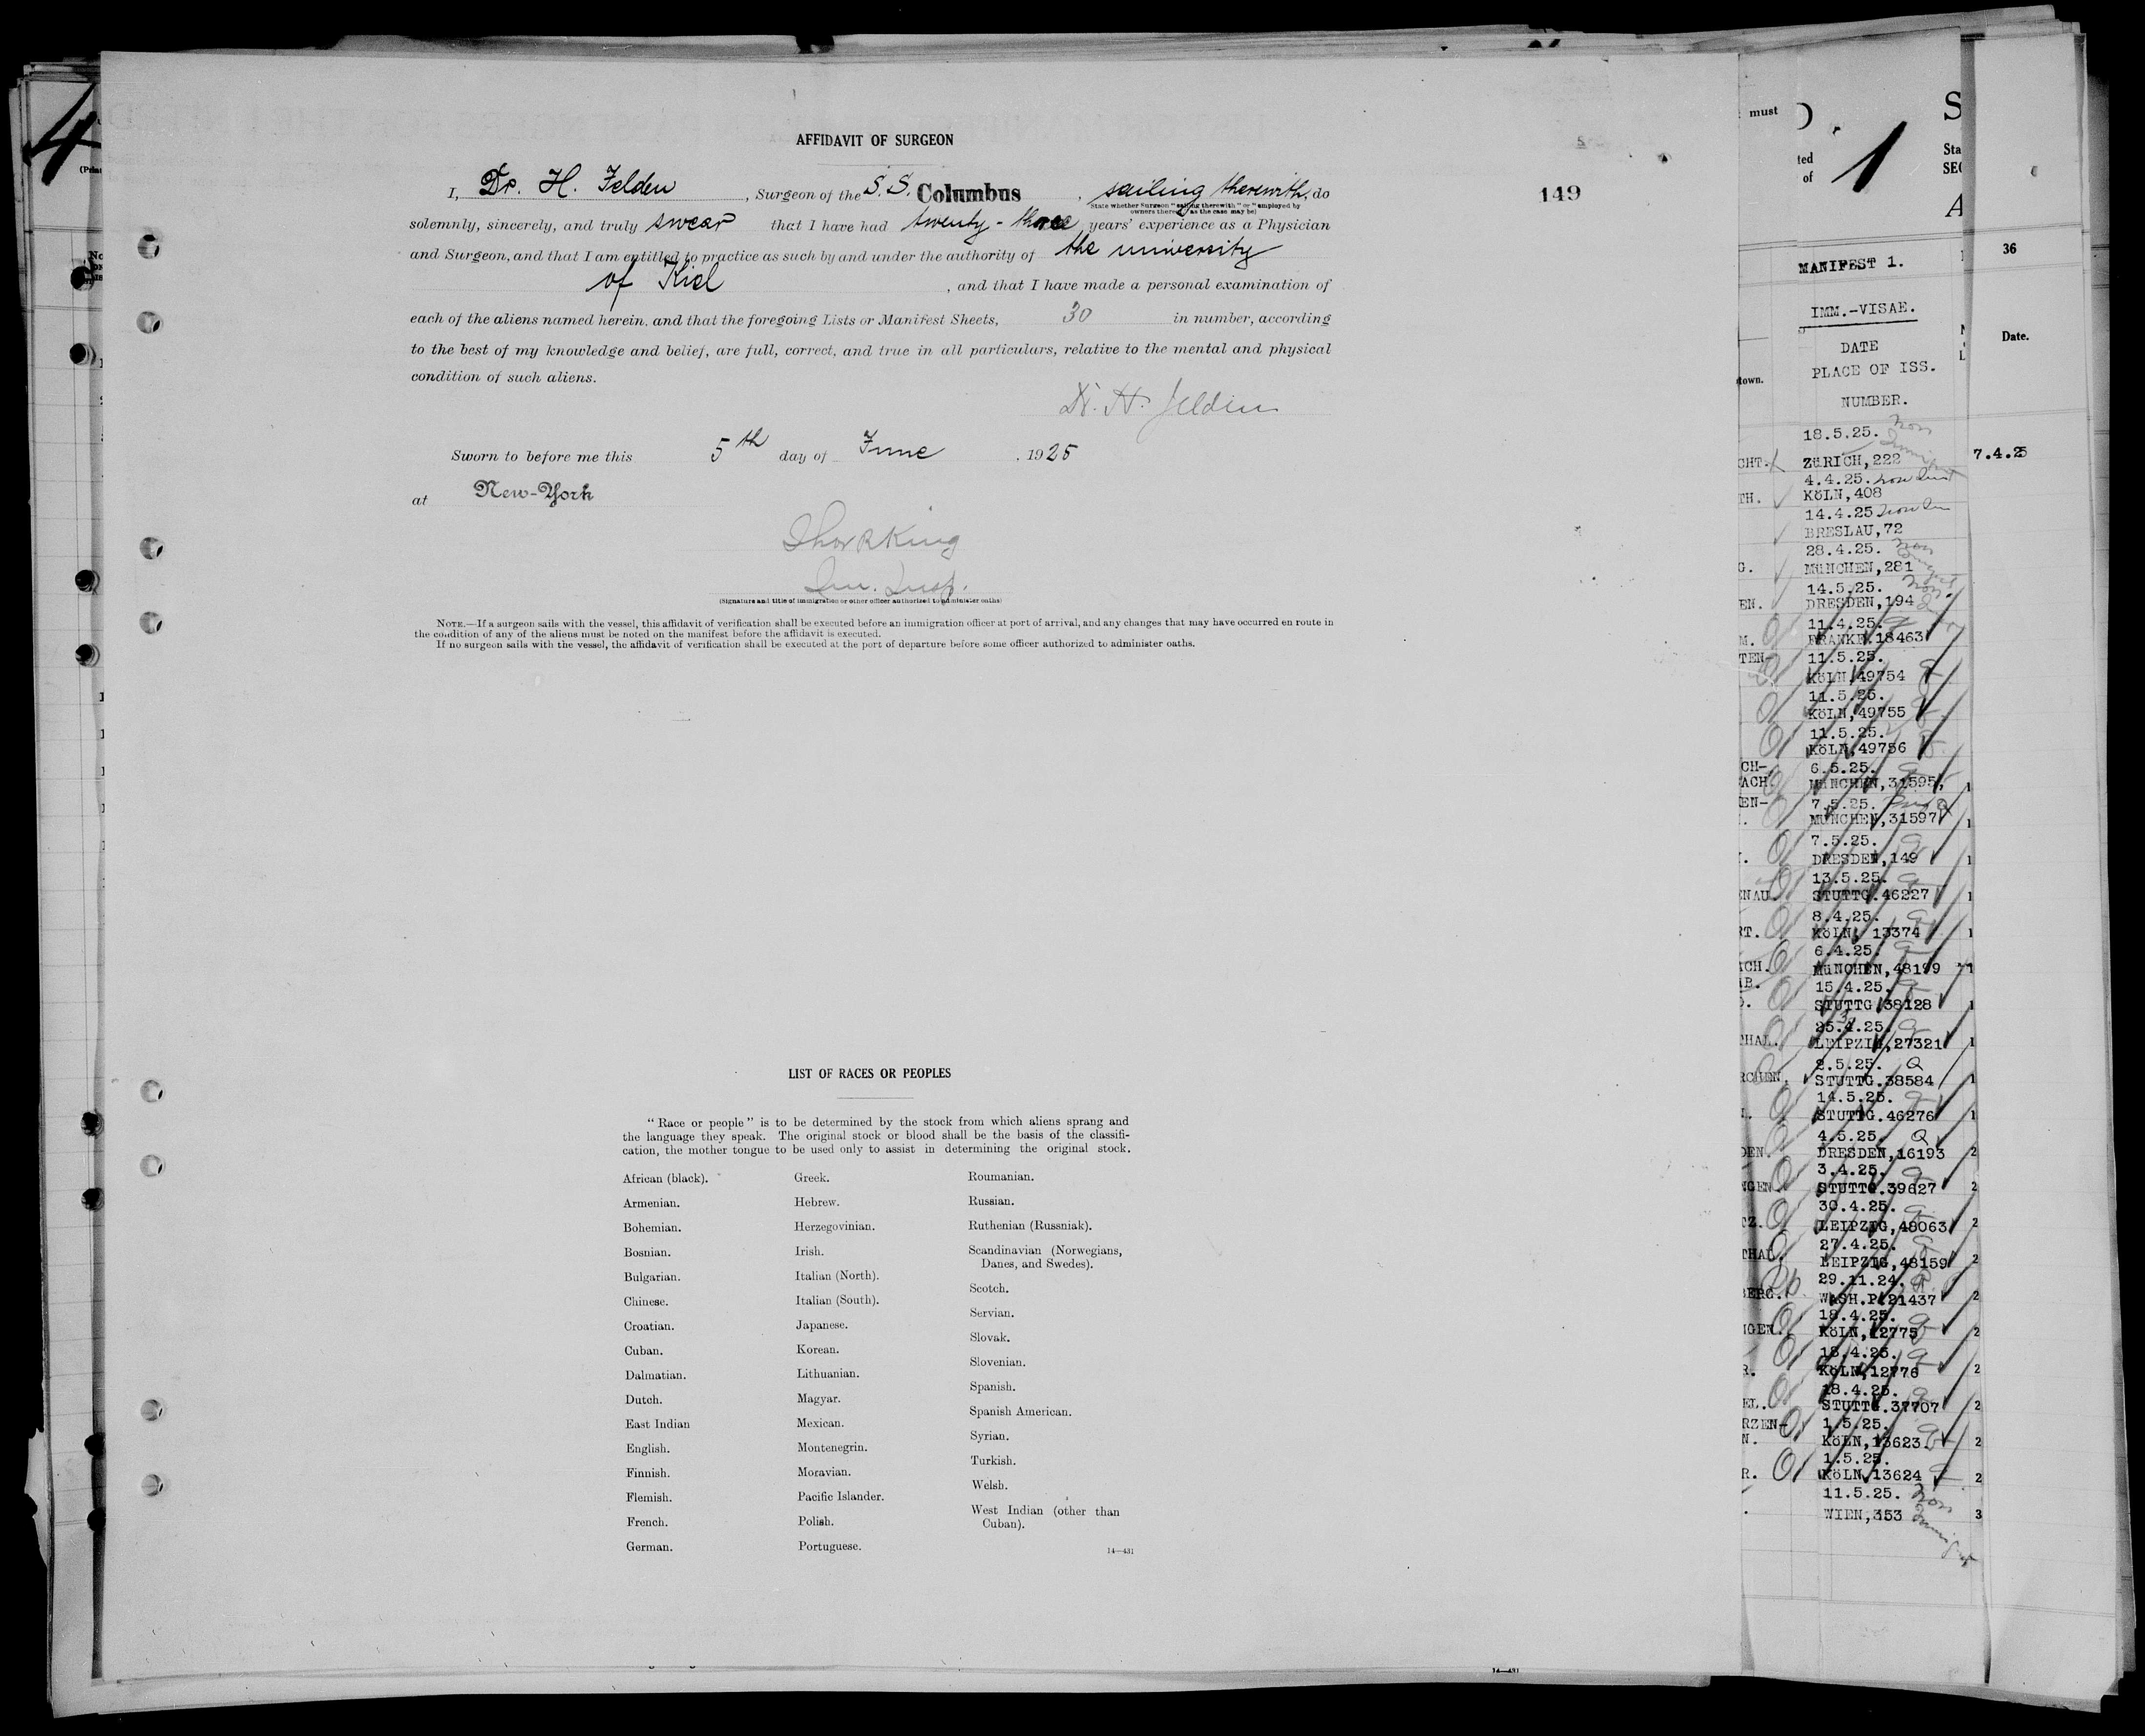 4
AFFIDAVIT OF SURGEON
149
I, Dr. H. Felden, Surgeon of the S.S. Columbus, sailing therewith, do
State whether Surgeon "sailing therewith" or "employed by
owners thereof" as the case may be)
solemnly, sincerely, and truly swear that I have had twenty-three years' experience as a Physician
and Surgeon, and that I am entitled to practice as such by and under the authority of the university
of Kiel, and that I have made a personal examination of
each of the aliens named herein, and that the foregoing Lists or Manifest Sheets, 30 in number, according
to the best of my knowledge and belief, are full, correct, and true in all particulars, relative to the mental and physical
condition of such aliens.
Dr. H. Felden
Sworn to before me this 5th day of June, 1925
at New-York
King
Im. Insp.
(Signature and title of immigration or other officer authorized to administer oaths)
NOTE.—If a surgeon sails with the vessel, this affidavit of verification shall be executed before an immigration officer at port of arrival, and any changes that may have occurred en route in
the condition of any of the aliens must be noted on the manifest before the affidavit is executed.
If no surgeon sails with the vessel, the affidavit of verification shall be executed at the port of departure before some officer authorized to administer oaths.
LIST OF RACES OR PEOPLES
"Race or people" is to be determined by the stock from which aliens sprang and
the language they speak. The original stock or blood shall be the basis of the classifi-
cation, the mother tongue to be used only to assist in determining the original stock.
African (black).
Armenian.
Bohemian.
Bosnian.
Bulgarian.
Chinese.
Croatian.
Cuban.
Dalmatian.
Dutch.
East Indian
English.
Finnish.
Flemish.
French.
German.
Greek.
Hebrew.
Herzegovinian.
Irish.
Italian (North).
Italian (South).
Japanese.
Korean.
Lithuanian.
Magyar.
Mexican.
Montenegrin.
Moravian.
Pacific Islander.
Polish.
Portuguese.
Roumanian.
Russian.
Ruthenian (Russniak).
Scandinavian (Norwegians,
Danes, and Swedes).
Scotch.
Servian.
Slovak.
Slovenian.
Spanish.
Spanish American.
Syrian.
Turkish.
Welsh.
West Indian (other than
Cuban).
14—431
must
1
MANIFEST 1.
IMM.-VISAE.
DATE
PLACE OF ISS.
NUMBER.
18.5.25.
ZüRICH,222
4.4.25.
KöLN,408
14.4.25
BRESLAU,72
28.4.25.
MüNCHEN,281
14.5.25.
DRESDEN,194
11.4.25.
FRANKF.18463
11.5.25.
KöLN,49754
11.5.25.
KöLN,49755
11.5.25.
KöLN,49756
6.5.25.
MüNCHEN,31595
7.5.25.
MüNCHEN,31597
7.5.25.
DRESDEN,149
13.5.25.
STUTTG.46227
8.4.25.
KöLN, 13374
6.4.25.
MüNCHEN,48199
15.4.25.
STUTTG.38128
25.4.25.
LEIPZIG,27321
2.5.25.
STUTTG.38584
14.5.25.
STUTTG.46276
4.5.25.
DRESDEN,16193
3.4.25.
STUTTG.39627
30.4.25.
LEIPZIG,48063
27.4.25.
LEIPZIG,48159
29.11.24.
WASH.P.21437
18.4.25.
KöLN,12775
18.4.25.
KöLN,12776
18.4.25.
STUTTG.37707
1.5.25.
KöLN,13623
1.5.25.
KöLN,13624
11.5.25.
WIEN,353
36
Date.
7.4.25